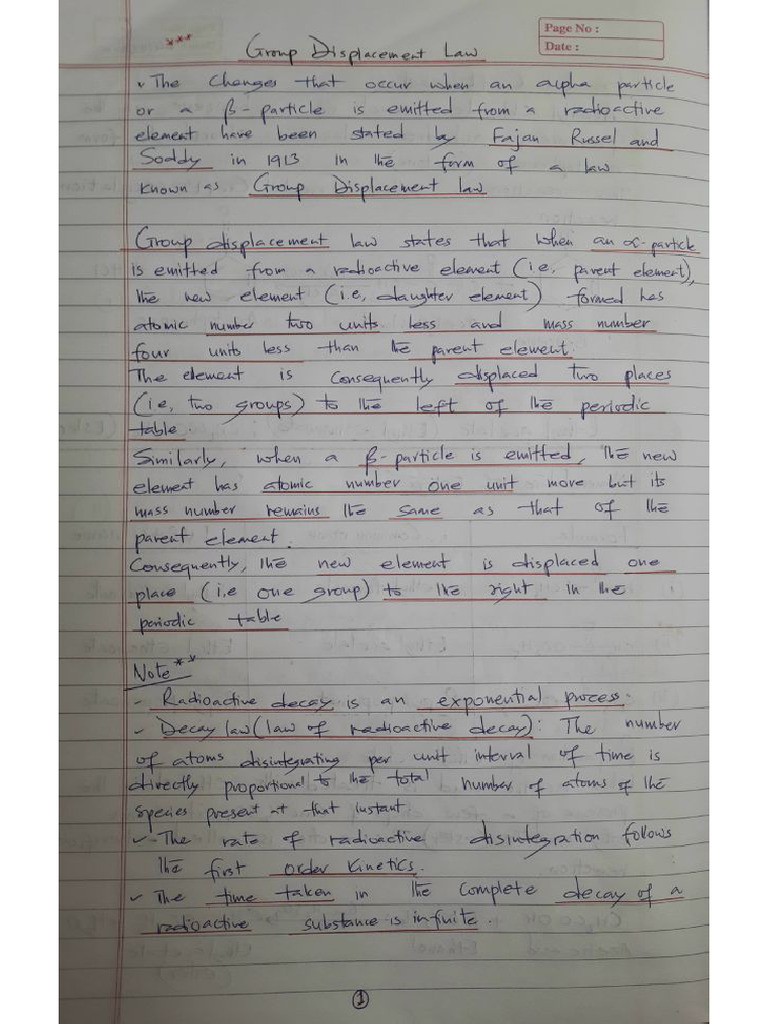 Page No :
Date :
***
Group Displacement Law
The changes that occur when an alpha particle
or a β-particle is emitted from a radioactive
element have been stated by Fajan Russel and
Soddy in 1913 in the form of a law
known as Group Displacement law
Group displacement law states that when an α-particle
is emitted from a radioactive element (i.e, parent element),
the new element (i.e, daughter element) formed has
atomic number two units less and mass number
four units less than the parent element.
The element is consequently displaced two places
(i.e, two groups) to the left of the periodic
table.
Similarly, when a β-particle is emitted, the new
element has atomic number one unit more but its
mass number remains the same as that of the
parent element.
Consequently, the new element is displaced one
place (i.e one group) to the right in the
periodic table
Note**
- Radioactive decay is an exponential process.
- Decay law (law of radioactive decay): The number
of atoms disintegrating per unit interval of time is
directly proportional to the total number of atoms of the
species present at that instant
- The rate of radioactive disintegration follows
the first order kinetics.
- The time taken in the complete decay of a
radioactive substance is infinite.
1